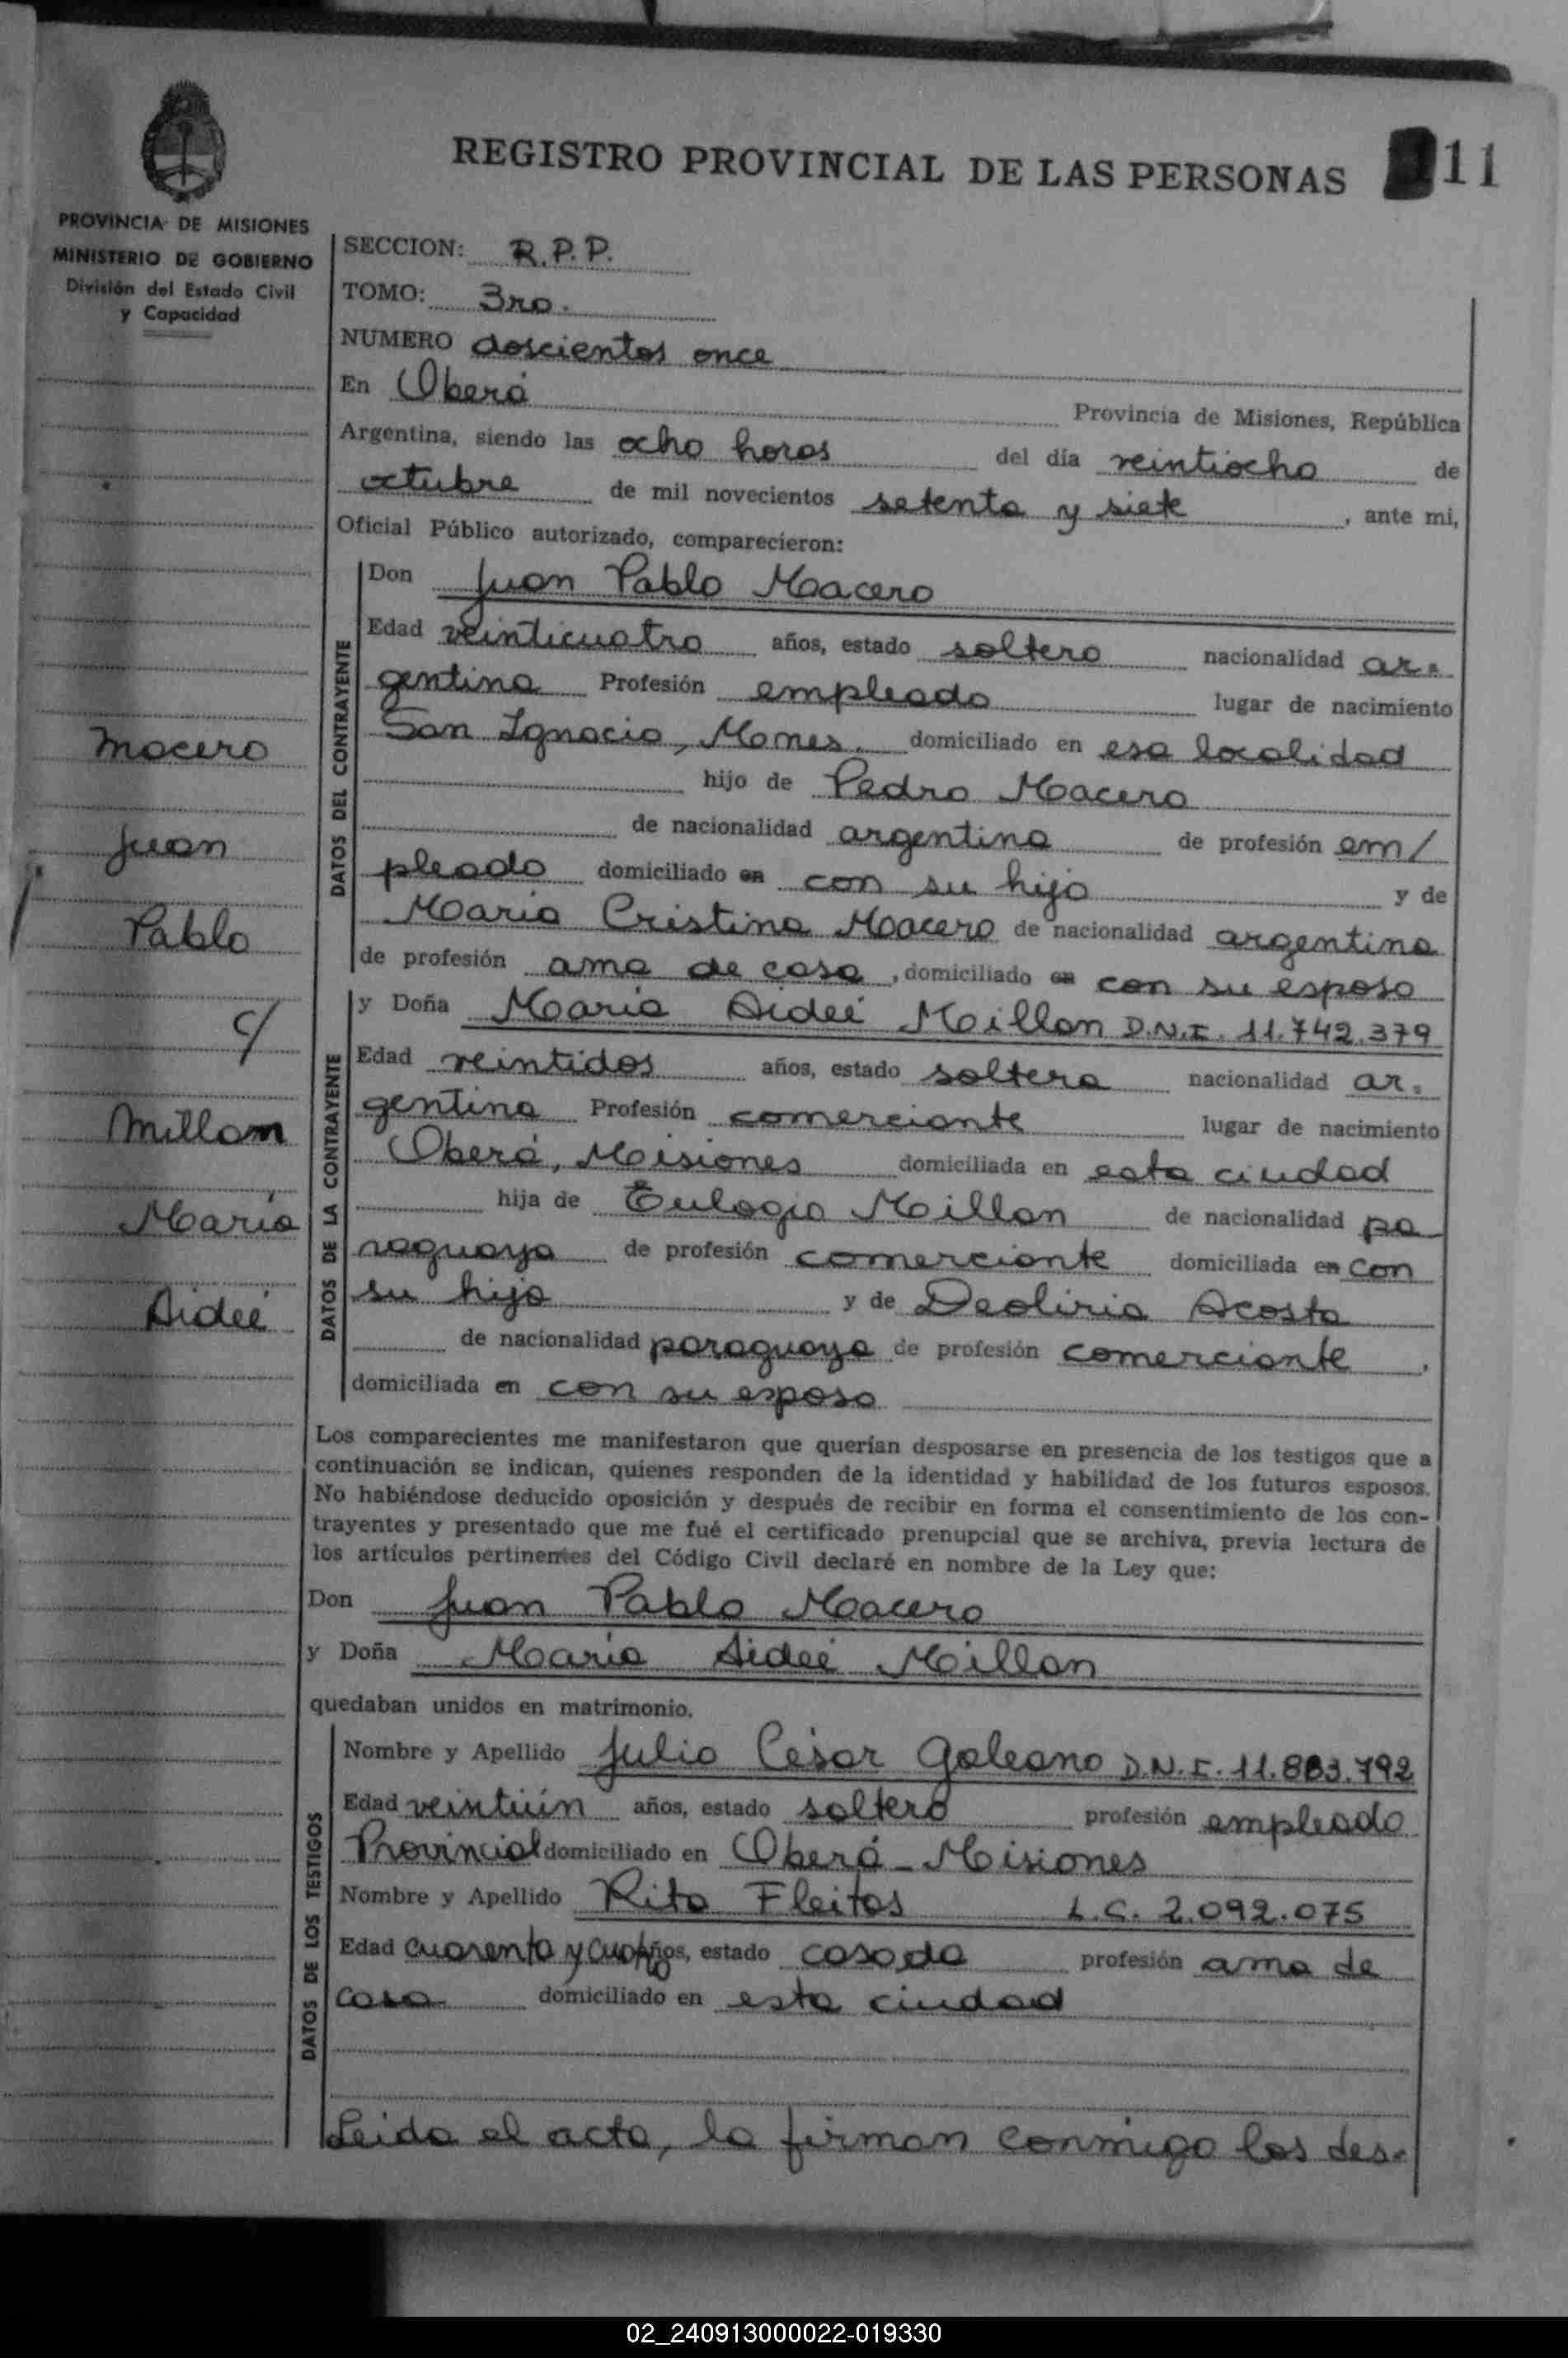 REGISTRO PROVINCIAL DE LAS PERSONAS 11
PROVINCIA DE MISIONES
MINISTERIO DE GOBIERNO
División del Estado Civil
y Capacidad
SECCION: R.P.P.
TOMO: 3ro.
NUMERO doscientos once
En Oberá Provincia de Misiones, República
Argentina, siendo las ocho horas del día veintiocho de
octubre de mil novecientos setenta y siete, ante mi,
Oficial Público autorizado, comparecieron:
DATOS DEL CONTRAYENTE
Don Juan Pablo Macero
Edad veinticuatro años, estado soltero nacionalidad ar=
gentina Profesión empleado lugar de nacimiento
San Ignacio, Mones. domiciliado en esa localidad
hijo de Pedro Macero
de nacionalidad argentina de profesión em/
pleado domiciliado en con su hijo y de
Maria Cristina Macero de nacionalidad argentina
de profesión ama de casa, domiciliado en con su esposo
DATOS DE LA CONTRAYENTE
y Doña María Aideé Millan D.N.I. 11.742.379
Edad veintidos años, estado soltera nacionalidad ar=
gentina Profesión comerciante lugar de nacimiento
Oberá, Misiones domiciliada en esta ciudad
hija de Eulogio Millan de nacionalidad pa
raguaya de profesión comerciante domiciliada en con
su hija y de Deoliria Acosta
de nacionalidad paraguaya de profesión comerciante,
domiciliada en con su esposo
Macero
Juan
Pablo
c/
Millan
María
Aideé
Los comparecientes me manifestaron que querían desposarse en presencia de los testigos que a
continuación se indican, quienes responden de la identidad y habilidad de los futuros esposos.
No habiéndose deducido oposición y después de recibir en forma el consentimiento de los con-
trayentes y presentado que me fué el certificado prenupcial que se archiva, previa lectura de
los artículos pertinentes del Código Civil declaré en nombre de la Ley que:
Don Juan Pablo Macero
y Doña María Aideé Millan
quedaban unidos en matrimonio.
DATOS DE LOS TESTIGOS
Nombre y Apellido Julio César Galeano D.N.I. 11.883.792
Edad veintiún años, estado soltero profesión empleado
Provincial domiciliado en Oberá - Misiones
Nombre y Apellido Rita Fleitas L.C. 2.092.075
Edad cuarenta y cuatro años, estado casada profesión ama de
casa domiciliado en esta ciudad
Leida el acta, la firman conmigo los des=
02_240913000022-019330